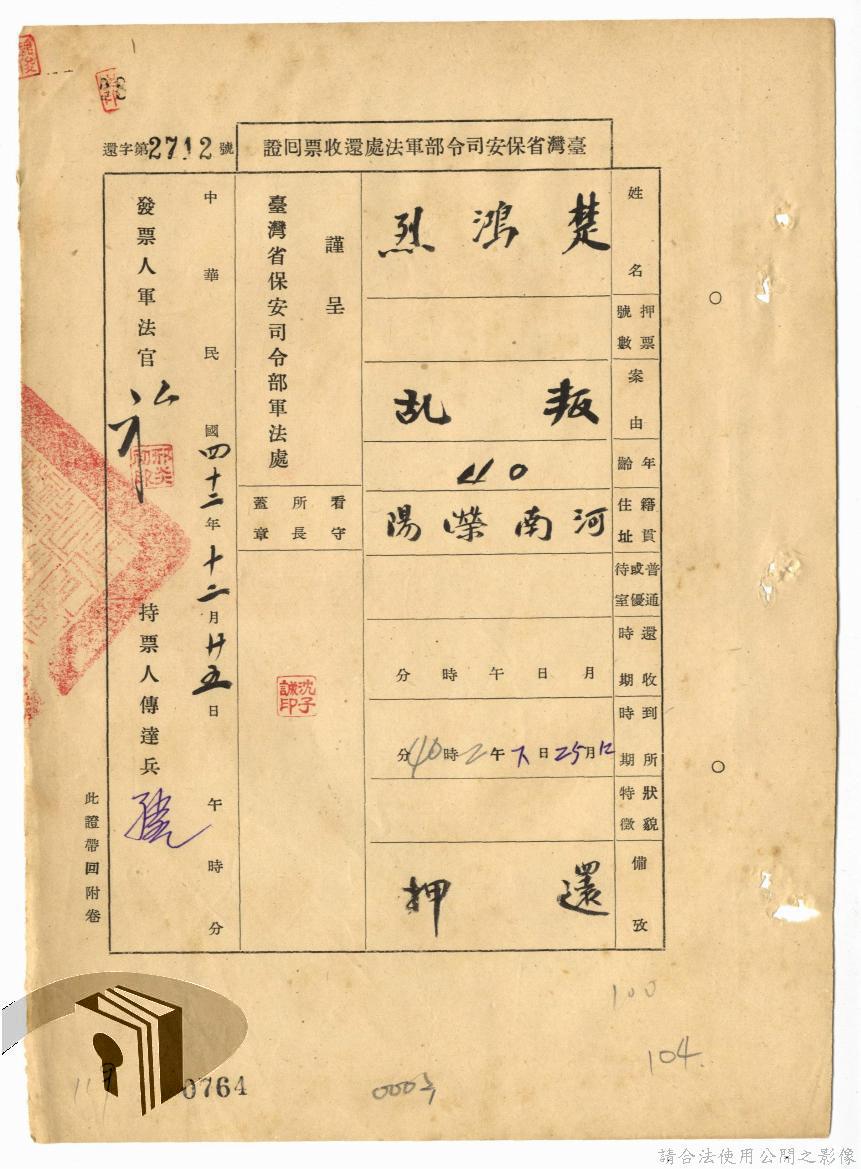 臺灣省保安司令部軍法處還收票回證
還字第2712號
姓名
楚鴻烈
押票號數
案由
叛乱
年齡
40
籍貫住址
河南滎陽
普通或優待室
還收時期
月日午時分
到所時期
12月25日下午2時40分
狀貌特徵
備攷
還押
謹呈
臺灣省保安司令部軍法處
看守所長蓋章
沈子誠印
中華民國四十二年十二月廿五日午時分
發票人軍法官
持票人傳達兵
此證帶回附卷
100
104.
0764
請合法使用公開之影像